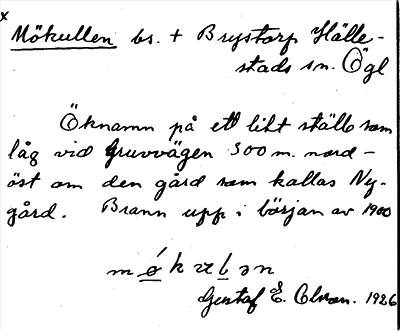 x
Mökullen bs. + Brystorp Hälle-
stads sn. Ögl
Öknamn på ett litet ställe som
låg vid Gruvvägen 300 m. nord-
öst om den gård som kallas Ny-
gård. Brann upp i början av 1900
Gustaf E.
1926